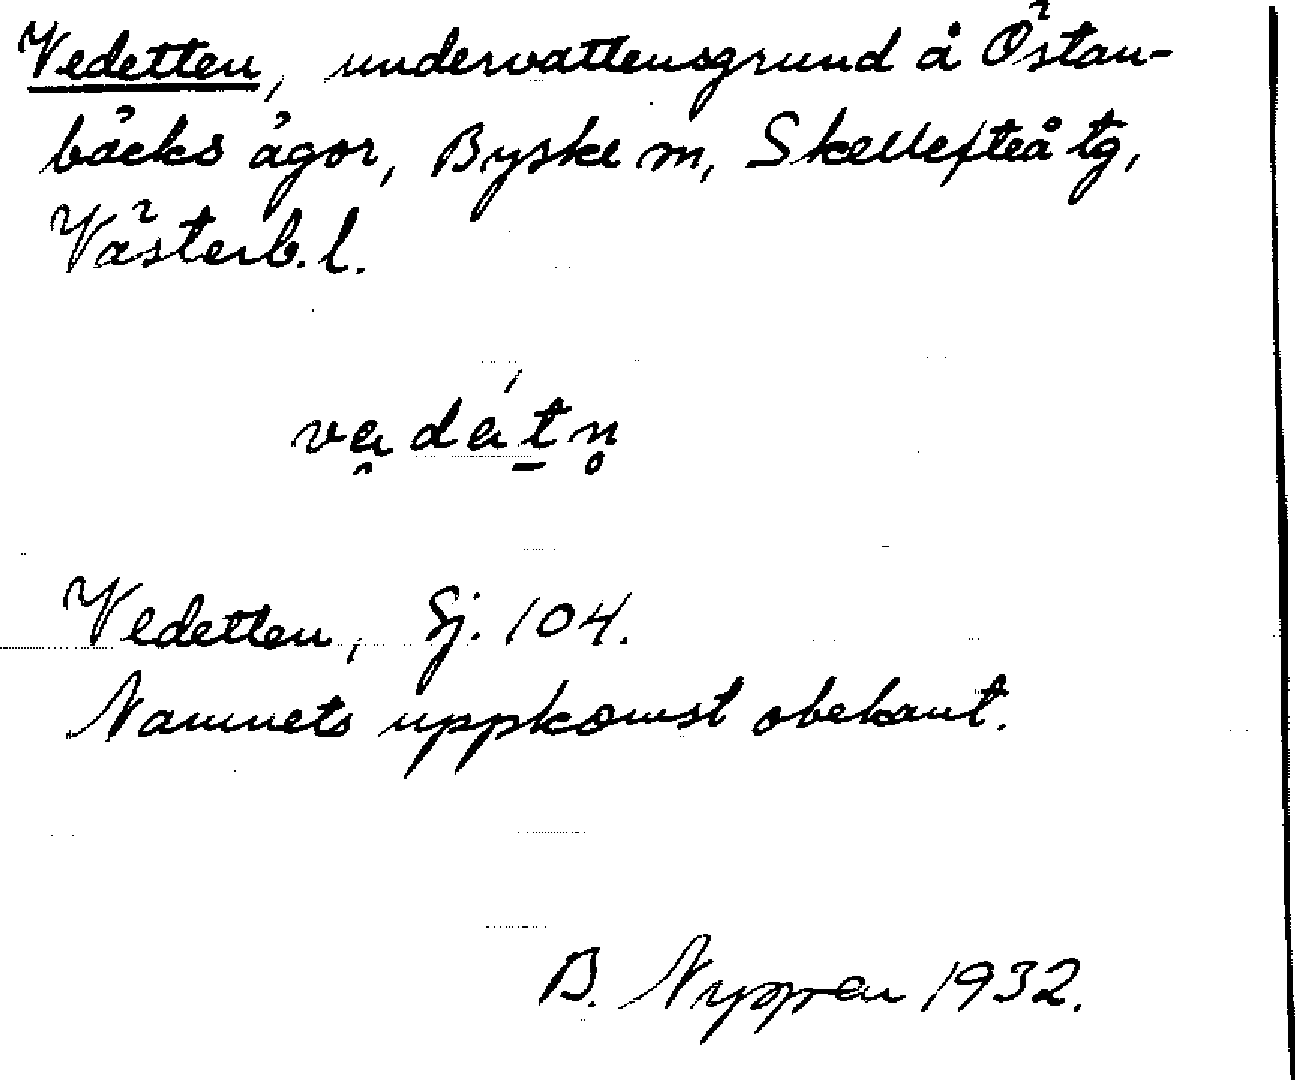 Vedetten, undervattensgrund å Östan-
bäcks ägor, Byske sn, Skellefteå tg,
Västerb. l.
vedétn̥
Vedetten, Sj. 104.
Namnets uppkomst obekant.
B. Nyppen 1932.